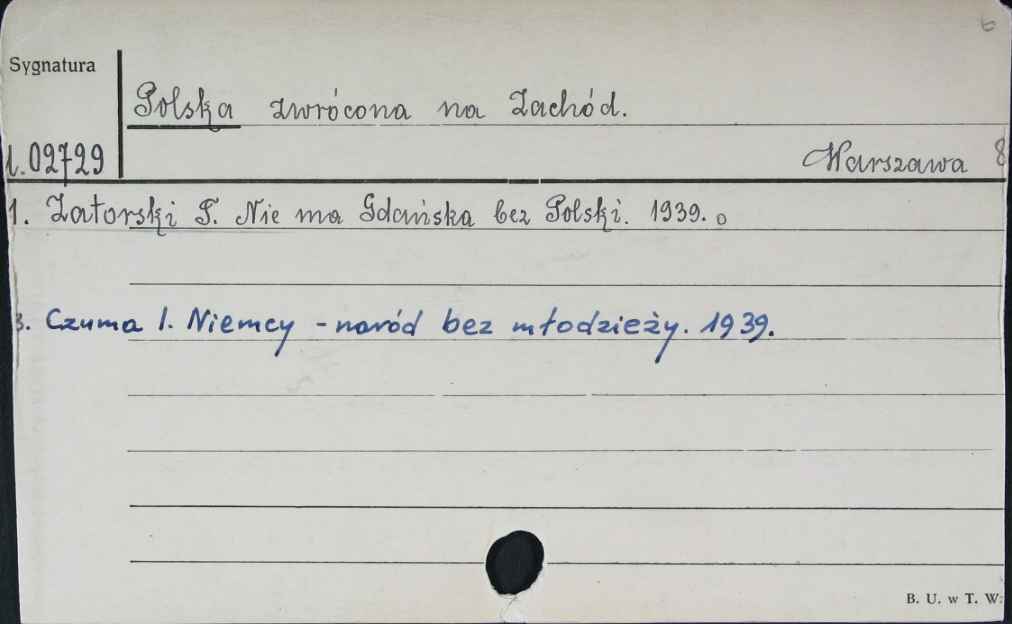 6
Sygnatura
Polska zwrócona na Zachód.
02729
Warszawa 8
1. Zatorski T. Nie ma Gdańska bez Polski. 1939. o
3. Czuma I. Niemcy - naród bez młodzieży. 1939.
B. U. w T. W: